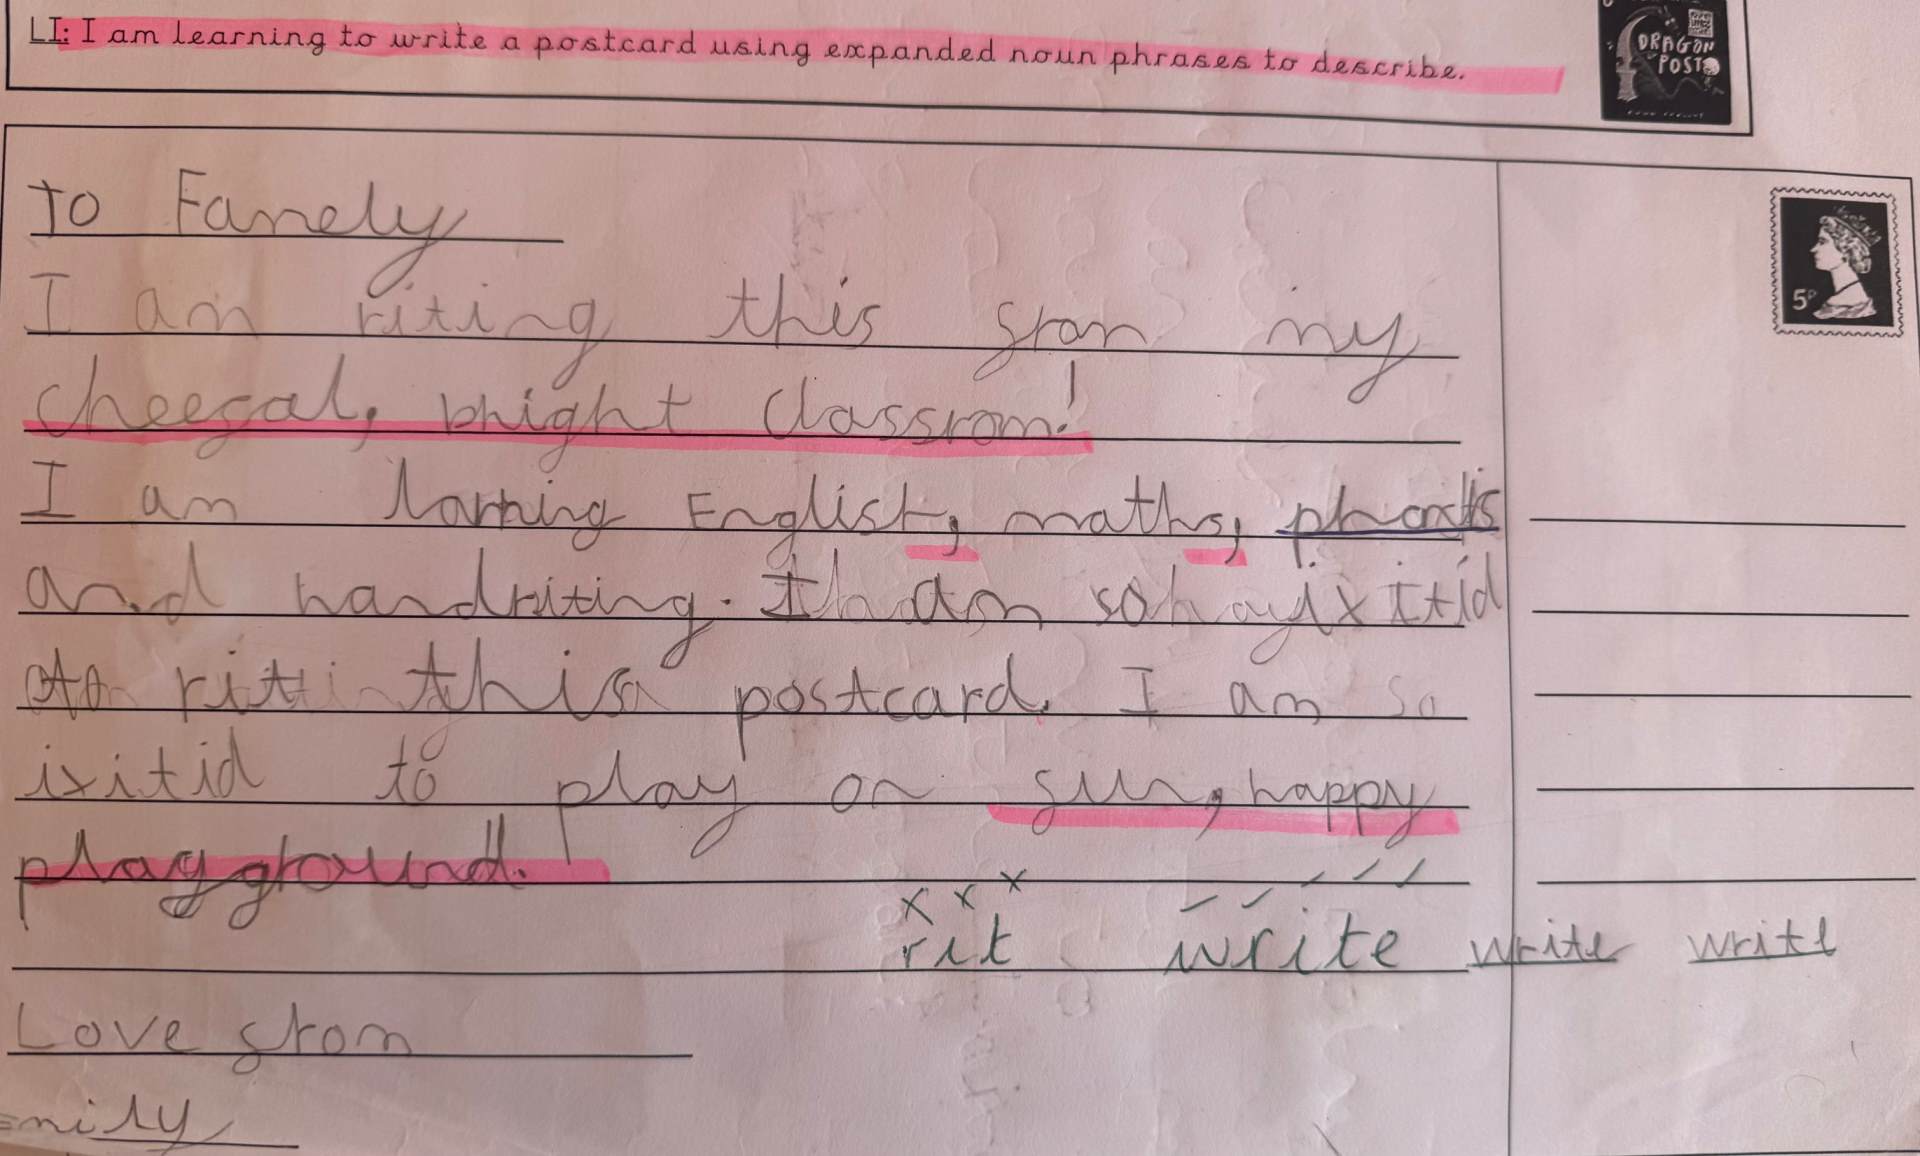 LI: I am learning to write a postcard using expanded noun phrases to describe.
DRAGON
POST
To Famely
I am riting this from my
cheefal, bright classrom!
I am larning English, maths,
and handriting. I am so ixitid
to rit this postcard. I am so
ixitid to play on fun, happy
playground.
rit write write write
Love from
Emily
5P